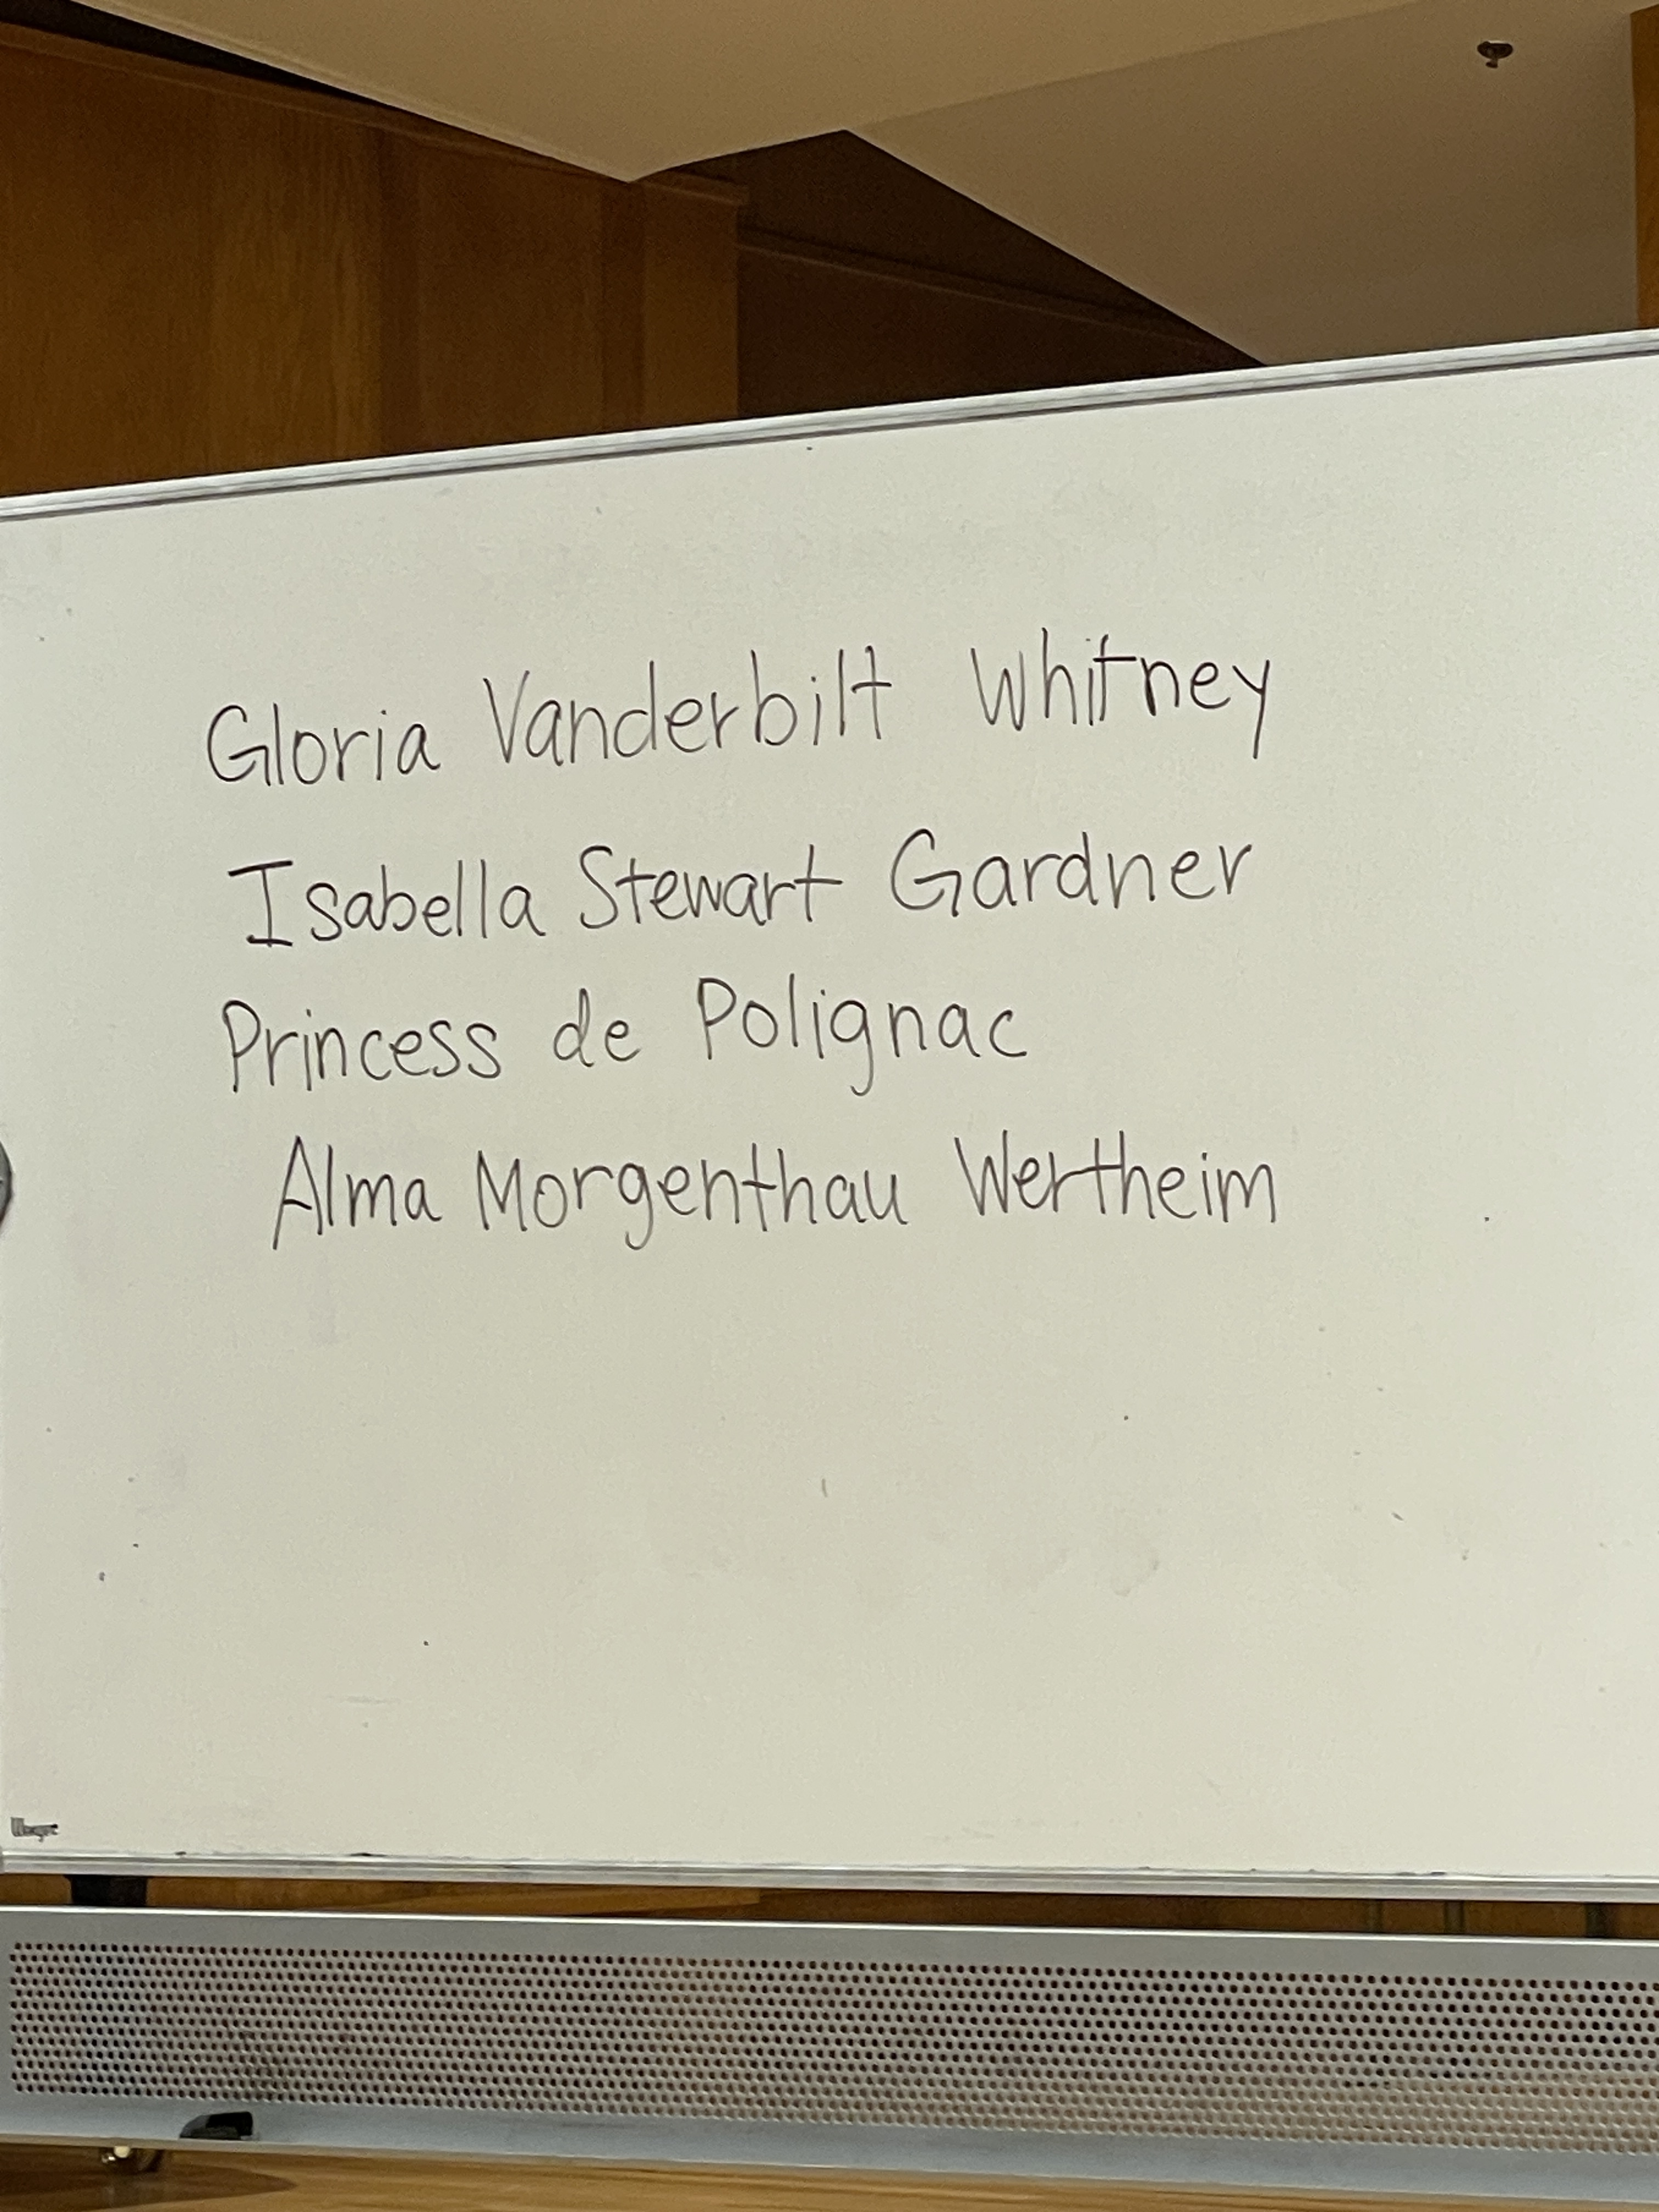 Gloria Vanderbilt Whitney
Isabella Stewart Gardner
Princess de Polignac
Alma Morgenthau Wertheim